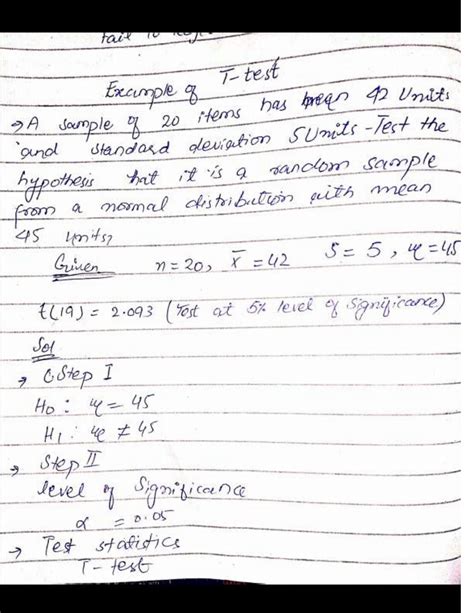 fail to
Example of T-test
→ A sample of 20 items has mean 42 Units
and standard deviation 5 Units - Test the
hypothesis that it is a random sample
from a normal distribution with mean
45 units?
Given n = 20, x̄ = 42 S = 5, μ = 45
t(19) = 2.093 (Test at 5% level of significance)
Sol
→ Step I
H₀ : μ = 45
H₁ : μ ≠ 45
→ Step II
level of Significance
α = 0.05
→ Test statistics
T - test